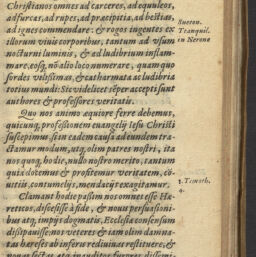 Christianos omnes ad carceres, ad equuleos,
ad furcas, ad rupes, ad præcipitia, ad bestias,
ad ignes commendare: & rogos ingentes ex
Sueton.
Tranquil.
in Nerone
illorum viuis corporibus, tantum ad vsum
nocturni luminis, & ad ludibrium inflam-
mare. eosq́, nō alio loco numerare, quam quo
sordes vilissimas, & catharmata ac ludibria
totius mundi: Ste videlicet sēper accepti sunt
authores & professores veritatis.
Quo nos animo æquiore ferre debemus,
quicunq́, professionem euangelij Iesu Christi
suscepimus. si in eadem causa ad eundem tra-
ctamur modum, vtq́, olim patres nostri, ita
nos quoq́, hodie, nullo nostro merito, tantum
quia docemus & profitemur veritatem, cō-
uitijs, contumelijs, mendacijs exagitamur.
1. Timoth.
4.
Clamant hodie passim nos omnes esse Hæ-
reticos, discessisse à fide, & nouis persuasioni-
bus atq́, impijs dogmatis, Ecclesiæ consensum
dissipauisse. nos veteres & iam olim damna-
tas hæreses ab inferis rediuiuas restituere, &